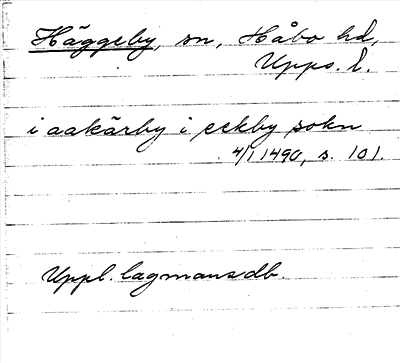 Häggeby, sn, Håbo hd,
Upps. l.
i aakärby i eekby sokn
4/1 1490, s. 101.
Uppl. lagmansdb.